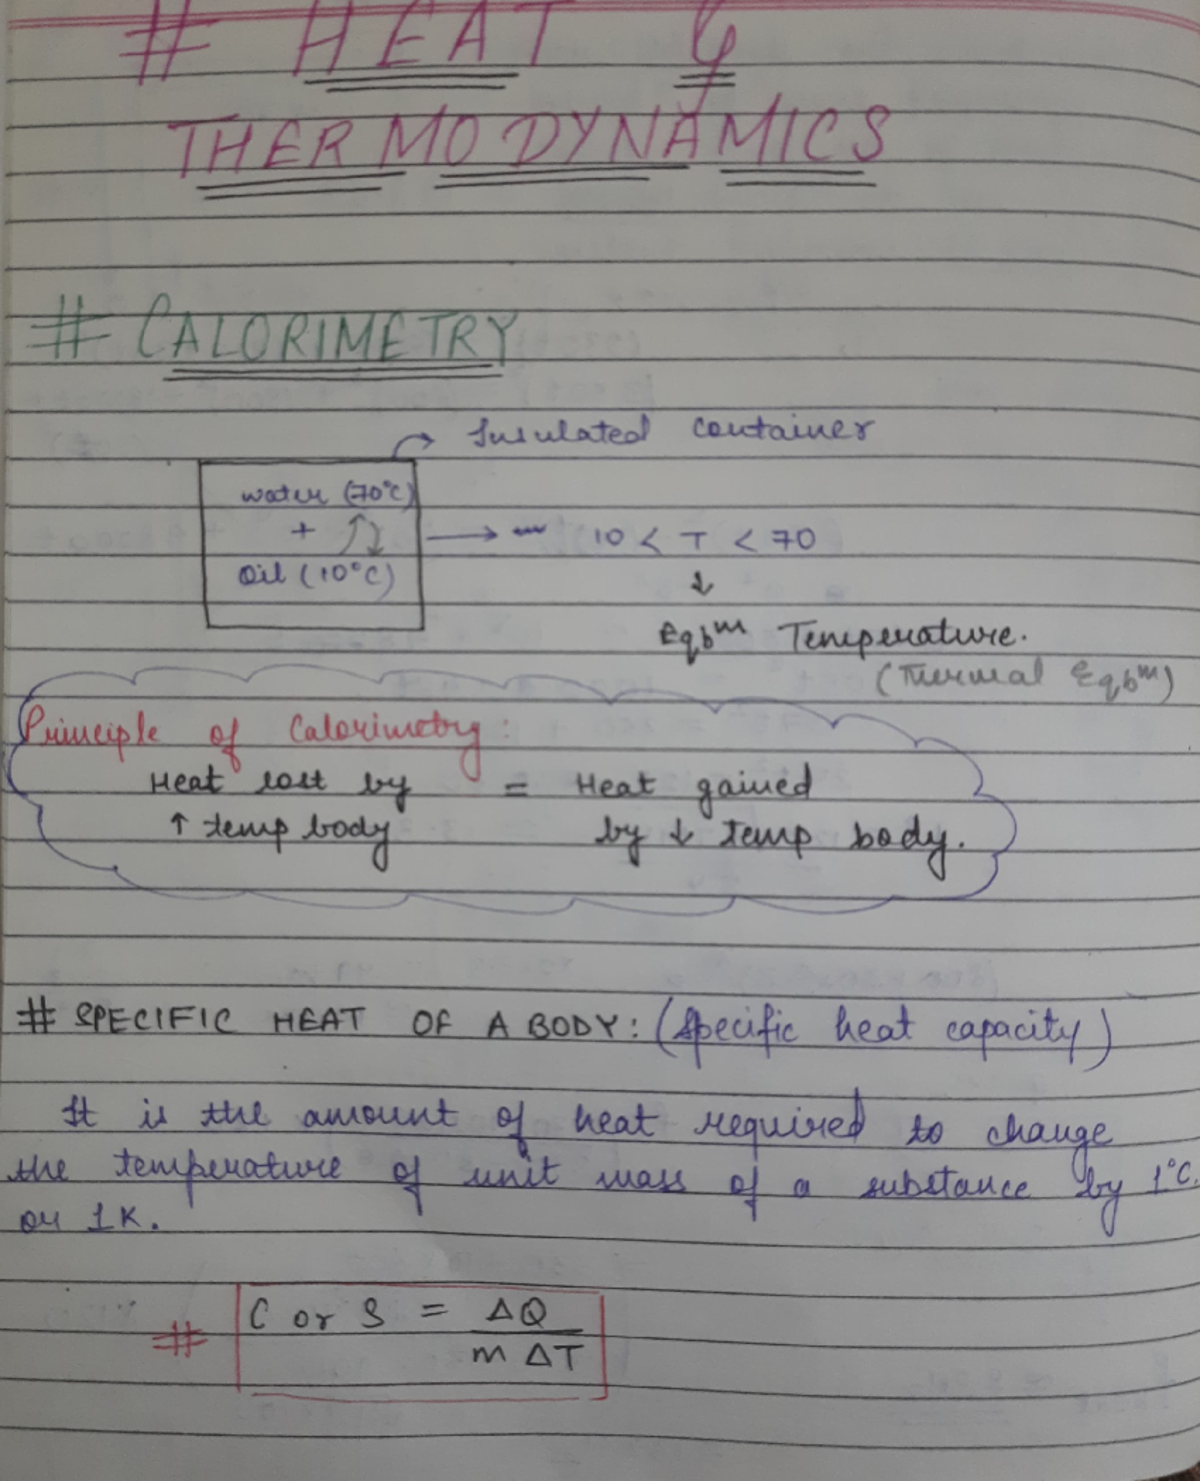 # HEAT &
THERMODYNAMICS
# CALORIMETRY
Insulated container
water (70°C)
+
Oil (10°C)
→ 10 < T < 70
↓
Eqbᵐ Temperature.
(Thermal Eqbᵐ)
Principle of Calorimetry:
Heat lost by = Heat gained
↑ temp body by ↓ temp body.
# SPECIFIC HEAT OF A BODY: (Specific heat capacity)
It is the amount of heat required to change
the temperature of unit mass of a substance by 1°C.
or 1K.
# C or S = ΔQ
m ΔT